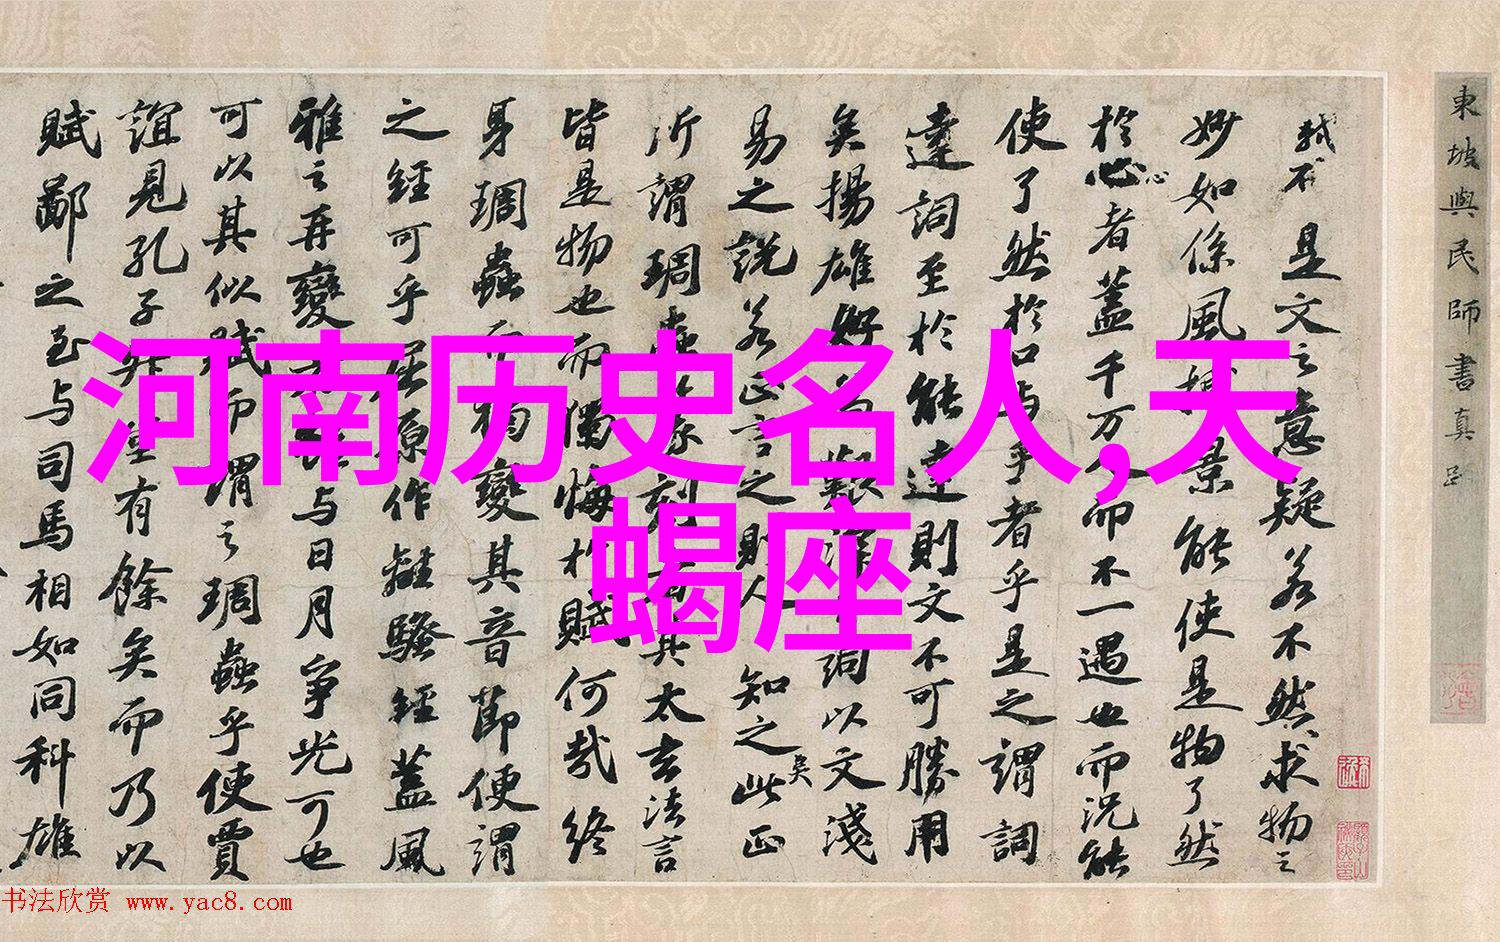 東坡與民師書真跡
軾不是文之意疑若不然求物之
妙如係風捕景能使是物了然
於心者蓋千万人而不一遇也而況能
心
使了然於口与手者乎是之謂詞
達詞至於能達則文不可勝用
矣揚雄好為艱深詞以文淺
易之說若正言之則人知之矣此正
所謂琱虫篆刻者其太玄法言
皆是物也而獨悔於賦何哉終
身琱蟲而獨變其音節便謂
之經可乎屈原作離騷經蓋風
雅之再變与日月爭光可也
可以其似賦而謂之琱蟲乎使賈
誼見孔子升堂有餘矣而乃以
賦鄙之至与司馬相如同科雄
河南历史名人,天
蝎座
书法欣赏 www.yac8.com